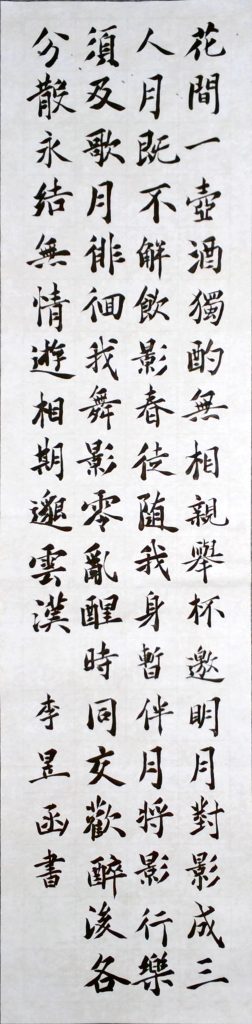 花間一壺酒獨酌無相親舉杯邀明月對影成三
人月既不解飲影春徒隨我身暫伴月将影行樂
須及歌月徘徊我舞影零亂醒時同交歡醉後各
分散永結無情遊相期邈雲漢 李昱函書